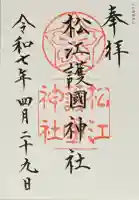 奉拝
松江護國神社
松江
護國
神社
令和七年四月二十九日